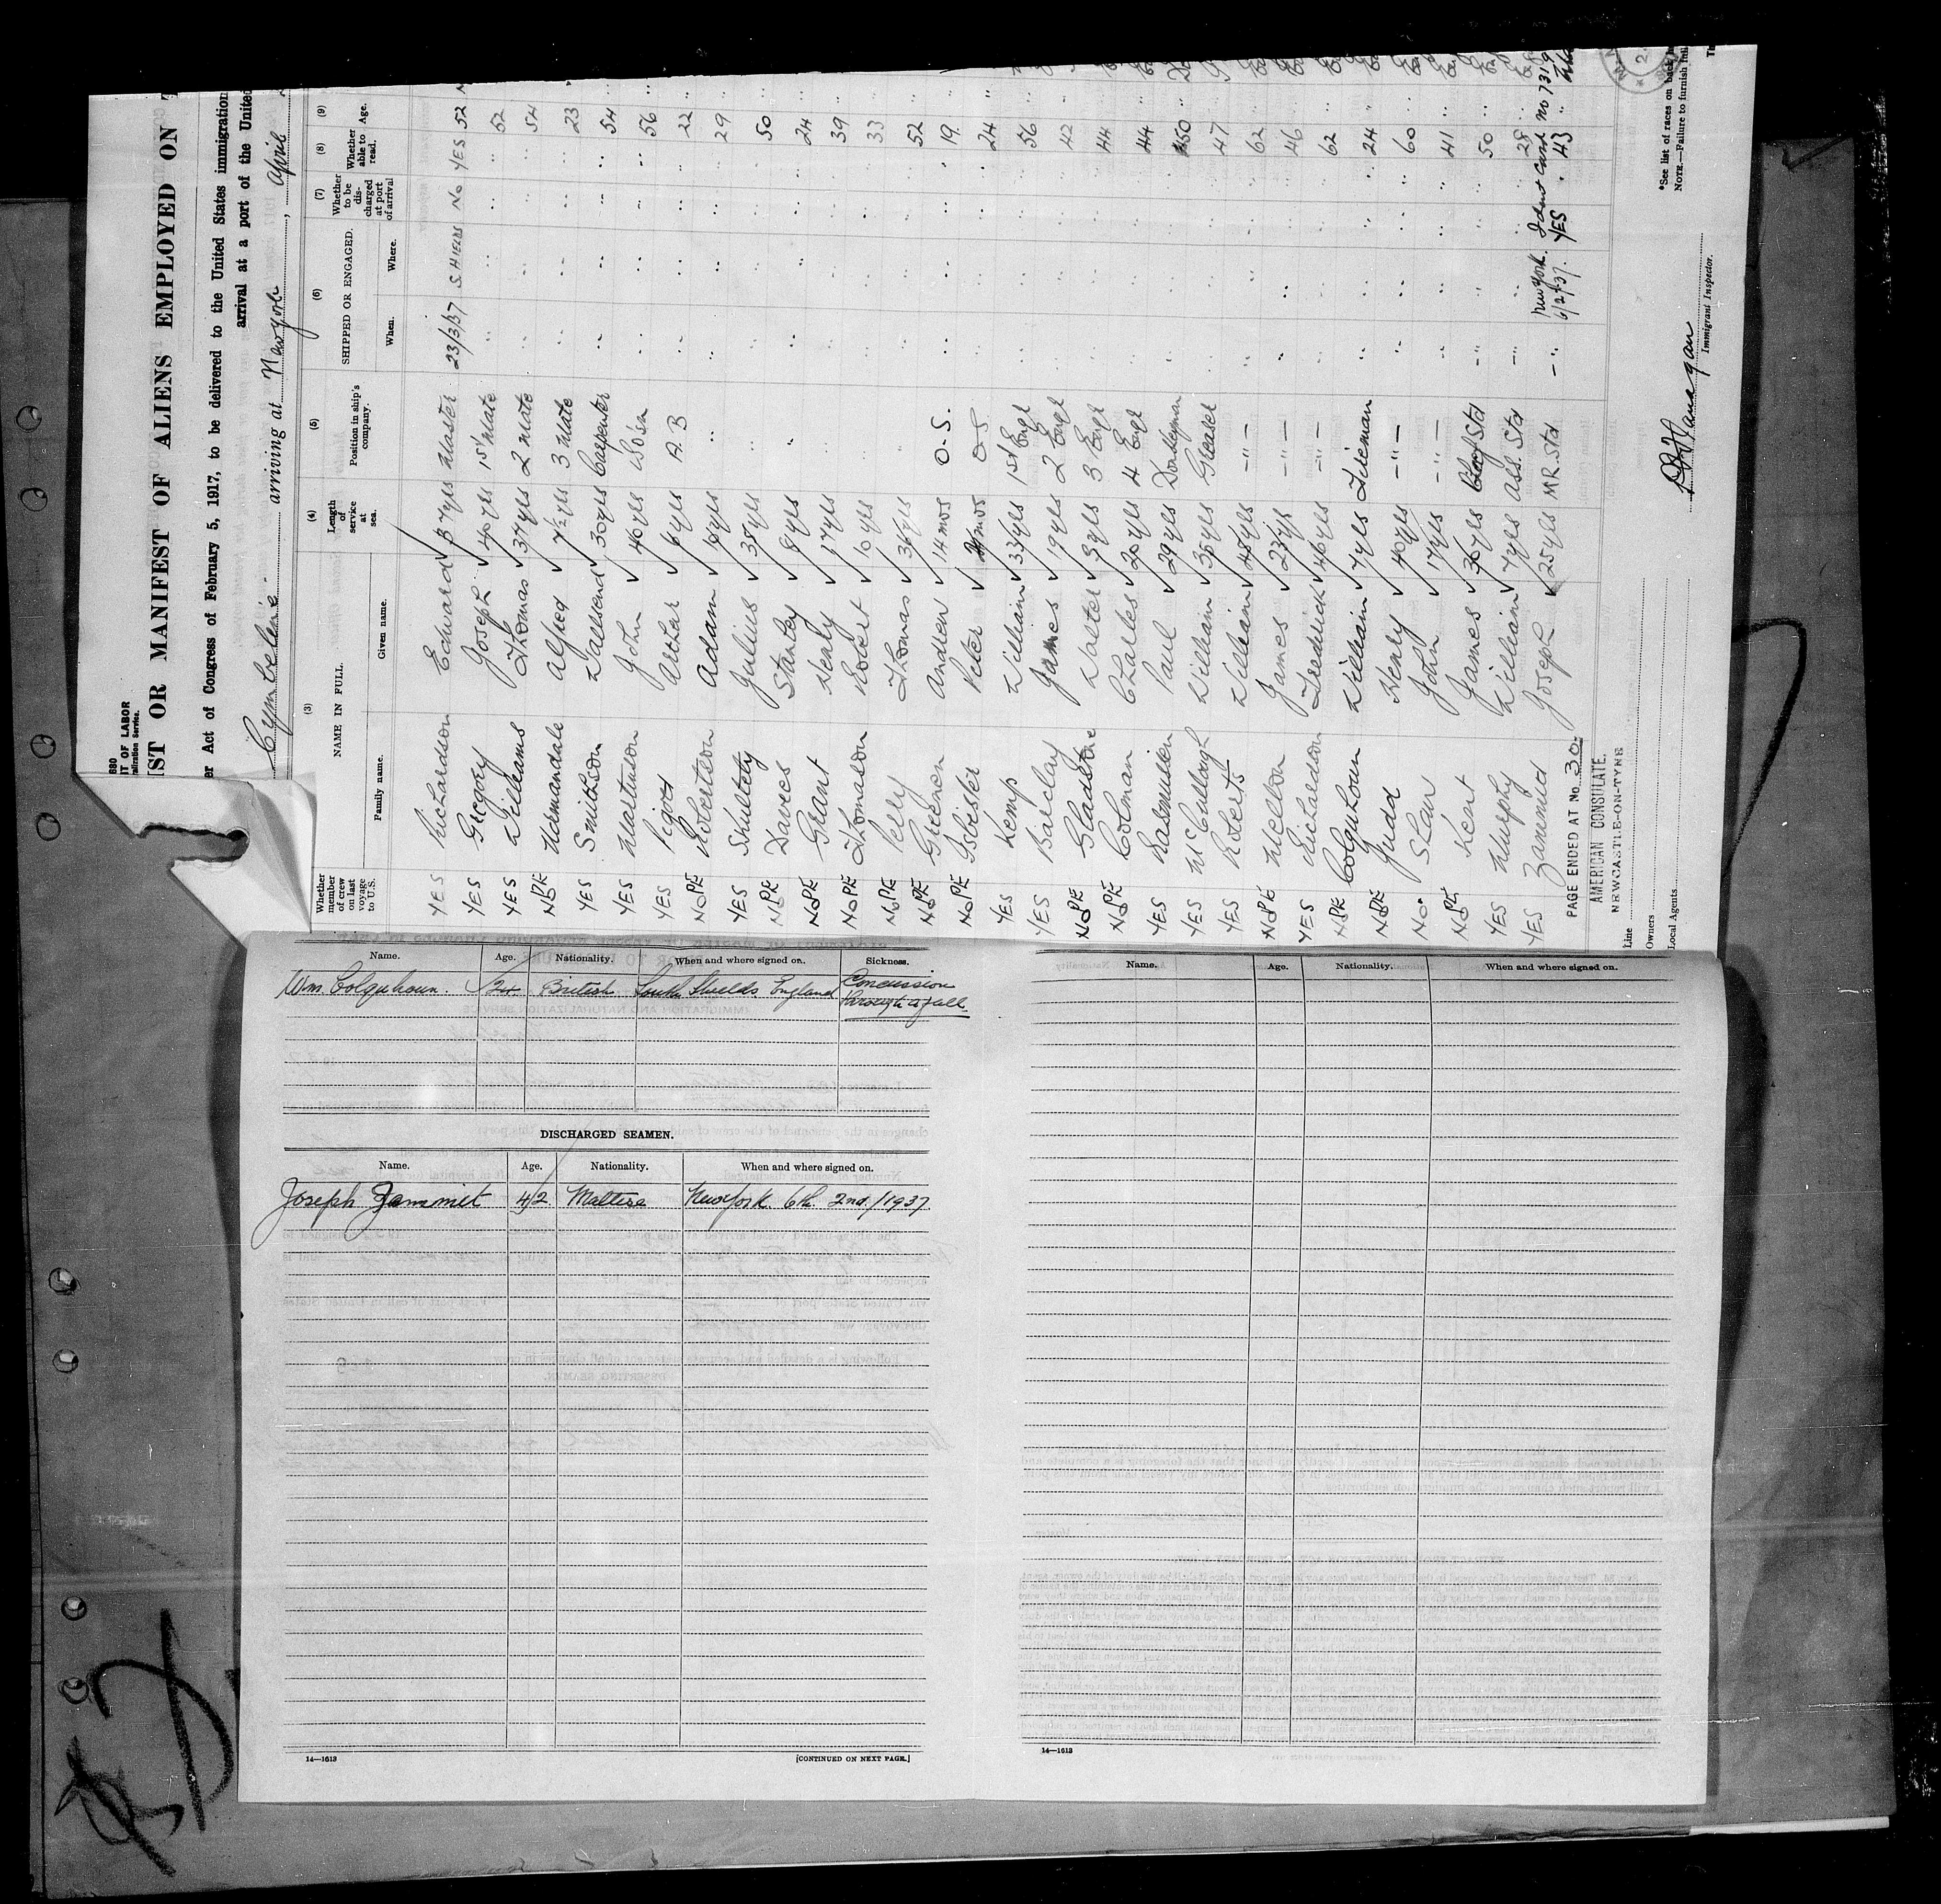 680
T OF LABOR
alization Service.
IST OR MANIFEST OF ALIENS EMPLOYED ON T
er Act of Congress of February 5, 1917, to be delivered to the United States immigration
arrival at a port of the United
Cymbeline arriving at New York, April
(3) (4) (5) (6) (7) (8) (9)
Whether member of crew on last voyage to U.S. NAME IN FULL. Length of service at sea. Position in ship's company. SHIPPED OR ENGAGED. Whether to be discharged at port of arrival Whether able to read. Age.
Family name. Given name. When. Where.
YES Richardson Edward 37 yrs Master 23/3/37 S. HIELDS No YES 52
YES Gregory Joseph 40 yrs 1st Mate " " " " 52
YES Williams Thomas 37 yrs 2 Mate " " " " 54
NOPE Normandale Alfred 7½ yrs 3 Mate " " " " 23
YES Smithson Townsend 30 yrs Carpenter " " " " 54
YES Martinson John 40 yrs Bo'sn " " " " 56
YES Pigory Arthur 6 yrs A. B " " " " 22
NOPE Robertson Adam 10 yrs " " " " " 29
YES Shultety Julius 35 yrs " " " " " 50
NOPE Davies Stanley 8 yrs " " " " " 24
NOPE Grant Henry 17 yrs " " " " " 39
NOPE Thomason Robert 10 yrs " " " " " 33
NOPE Perry Thomas 36 yrs " " " " " 52
NOPE Greener Andrew 14 mos O. S. " " " " 19
NOPE Isbister Peter mos O S " " " " 24
YES Kemp William 33 yrs 1st Engr " " " " 56
YES Barclay James 19 yrs 2 Engr " " " " 42
NOPE Gladstone Walter 9 yrs 3 Engr " " " " 44
NOPE Colman Charles 20 yrs 4 Engr " " " " 44
YES Rasmussen Paul 29 yrs Donkeyman " " " " 50
YES McCullough William 30 yrs Greaser " " " " 47
YES Roberts William 45 yrs -"- " " " " 62
NOPE Neilson James 23 yrs -"- " " " " 46
YES Richardson Fredrick 40 yrs -"- " " " " 62
NOPE Colquhoun William 7 yrs Fireman " " " " 24
NOPE Judd Henry 40 yrs -"- " " " " 60
NO. Shaw John 17 yrs -"- " " " " 41
NOPE Kent James 30 yrs Chief Std -"- " " " 50
YES Murphy William 7 yrs Ass. Std -"- " " " 28
YES Zammid Joseph 25 yrs MR. Std -"- New York. 6/2/37. YES " 43
Ident Card No 7319
PAGE ENDED AT No 30.
AMERICAN CONSULATE.
NEWCASTLE-ON-TYNE
Line
Owners
Local Agents
Immigrant Inspector.
*See list of races on back
NOTE.—Failure to furnish
Name. Age. Nationality. When and where signed on. Sickness.
Wm. Colquhoun. 24 British South Shields England Concussion
through a fall.
DISCHARGED SEAMEN.
Name. Age. Nationality. When and where signed on.
Joseph Zammit 42 Maltese New York. 6th. 2nd./1937.
14—1613 [CONTINUED ON NEXT PAGE.]
Name. Age. Nationality. When and where signed on.
14—1613